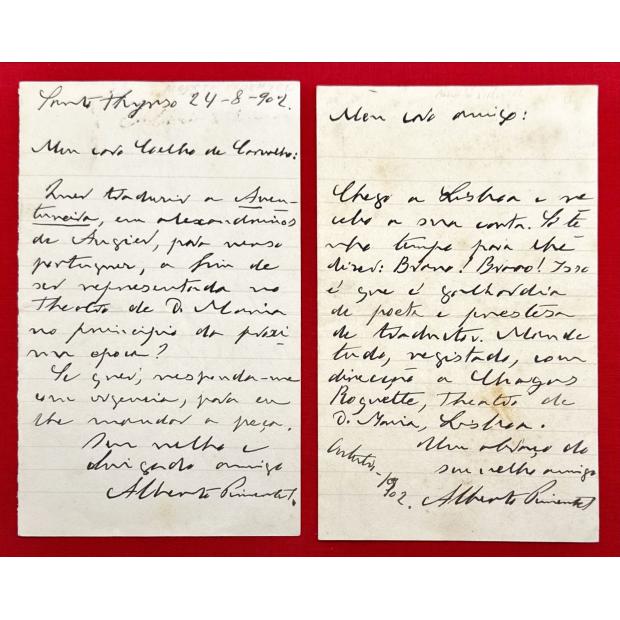 Santo Thyrso 24-8-902.
Meu caro Coelho de Carvalho:
Quer traduzir a Aven-
tureira, em alexandrinos
de Augier, para verso
portuguez, a fim de
ser representada no
Theatro de D. Maria
no principio da proxi
ma epoca?
Se quer, responda-me
com urgencia, para eu
lhe mandar a peça.
Seu velho e
obrigado amigo
Alberto Pimentel.
Meu caro amigo:
Chego a Lisboa e re
cebo a sua carta. Só te
nho tempo para lhe
dizer: Bravo! Bravo! Isso
é que é galhardia
de poeta e prestesa
de traductor. Mande
tudo, registado, com
direcção a Chagas
Roquette, Theatro de
D. Maria, Lisboa.
Um abraço do
seu velho amigo
902. Alberto Pimentel